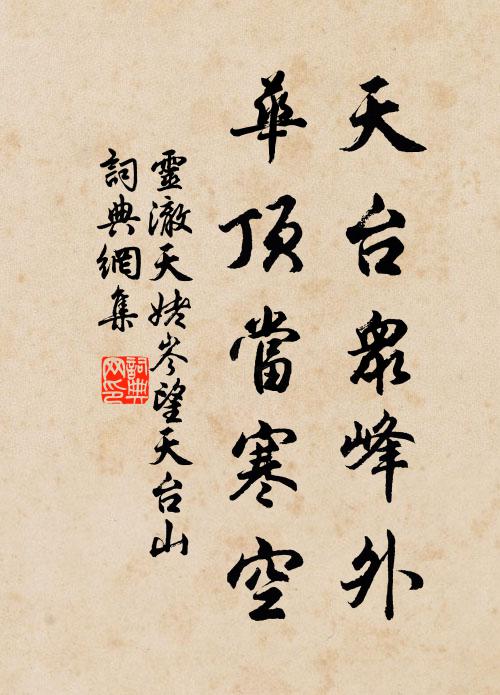 天台衆峰外
華頂當寒空
靈澈天姥岑望天台山
詞典網集
詞典
网印